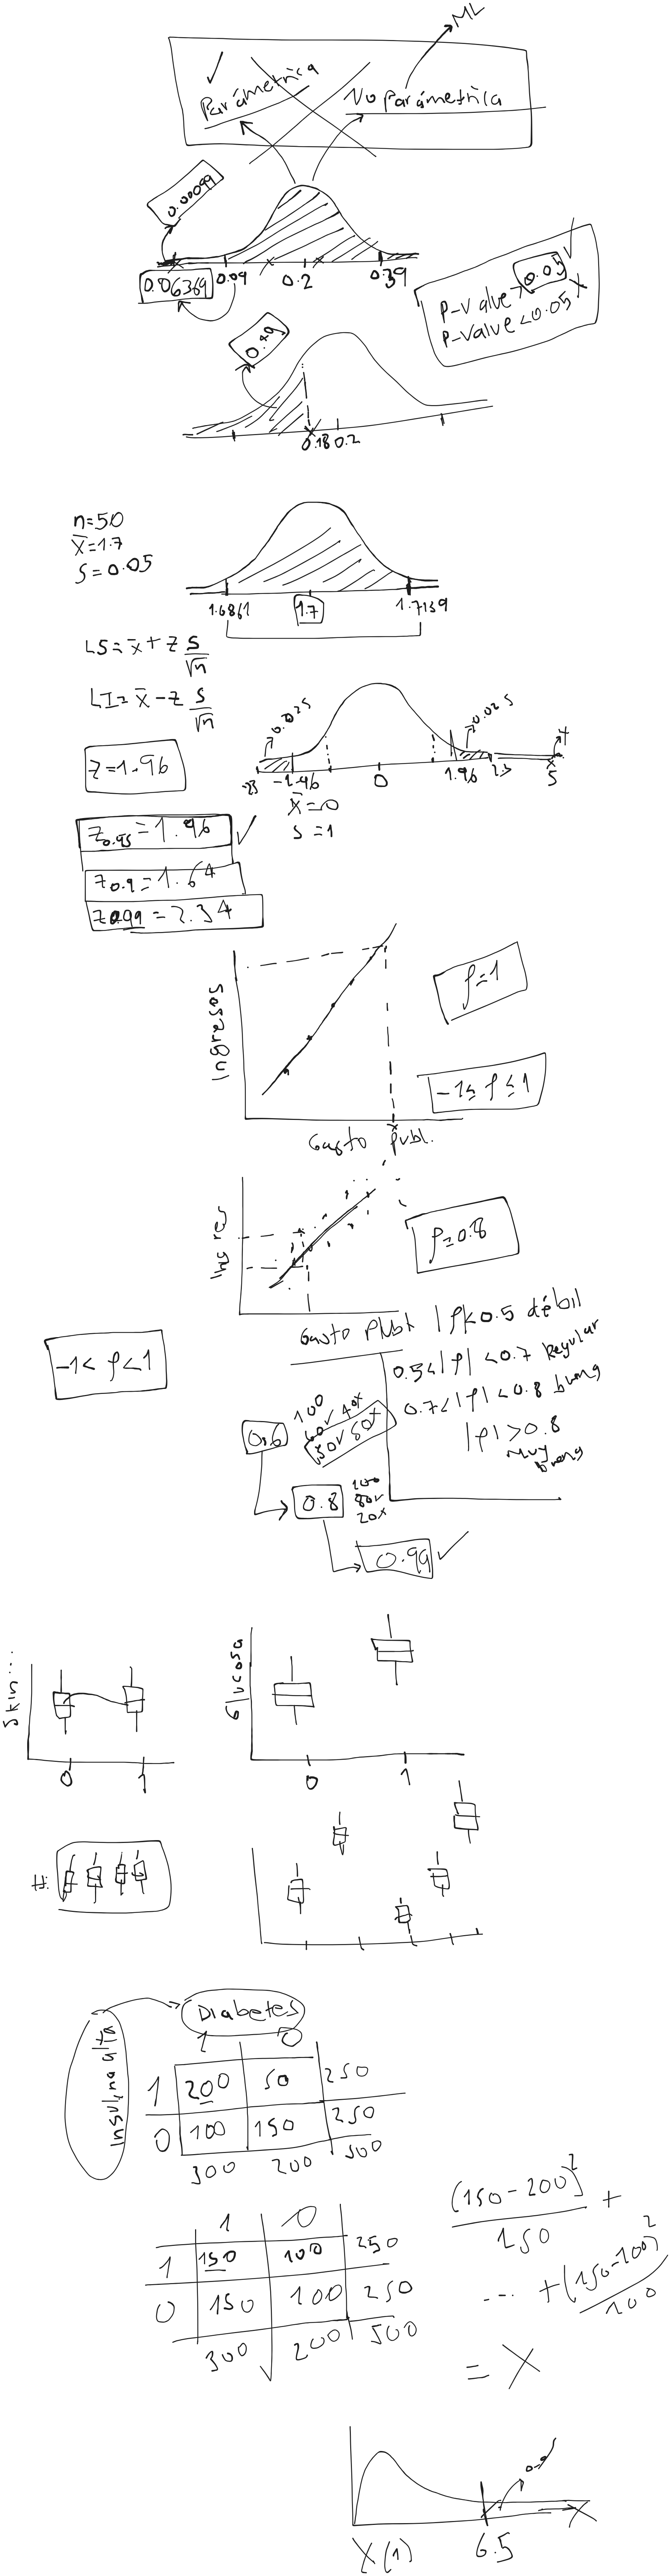 ML
Paramétrica
No Paramétrica
0.00099
0.06369
0.09
0.2
0.39
P-Value > 0.05
P-Value < 0.05 X
0.49
0.18 0.2
n=50
x̄=1.7
S=0.05
1.6861
1.7
1.7139
LS = x̄ + z S/√n
LI = x̄ - z S/√n
Z=1.96
0.025
0.025
-1.96
0
1.96
5
x̄=0
S=1
Z0.95=1.96
Z0.9=1.64
Z0.99=2.34
Ingresos
ρ=1
-1≤ρ≤1
Gasto Publ.
ρ=0.8
-1<ρ<1
|ρ|<0.5 débil
0.5<|ρ|<0.7 Regular
0.7<|ρ|<0.8 buena
|ρ|>0.8
muy
buena
0.6
100
60v 40x
50v 50x
0.8
100
80v
20x
0.99
Skin...
0 1
Glucosa
0 1
#
Diabetes
Insulina alta
1 0
1 200 50 250
0 100 150 250
300 200 500
1 0
1 150 100 250
0 150 100 250
300 200 500
(150-200)²/150 +
... + (150-100)²/100
= X
X(1)
6.5
X